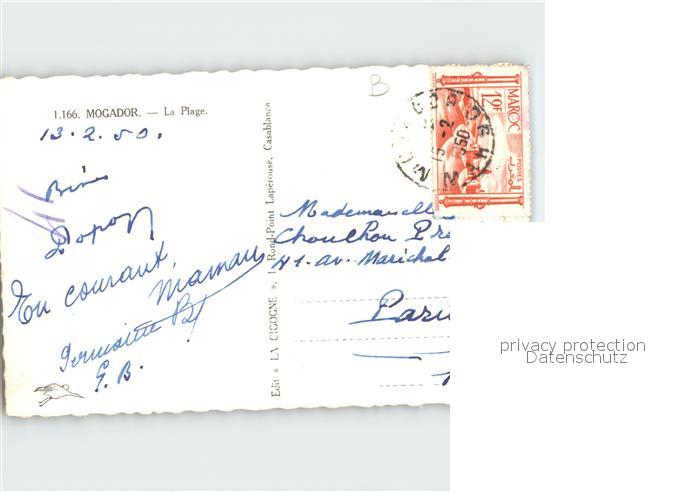 B
1.166. MOGADOR. — La Plage.
13.2.50.
En couraux,
Maman
Germaine
G. B.
Edit « LA CIGOGNE », 1 Rond-Point Lapérouse, Casablanca
MAROC
12F
POSTES
Mademoiselle
Chouchou
41. av. Maréchal
Paris
privacy protection
Datenschutz